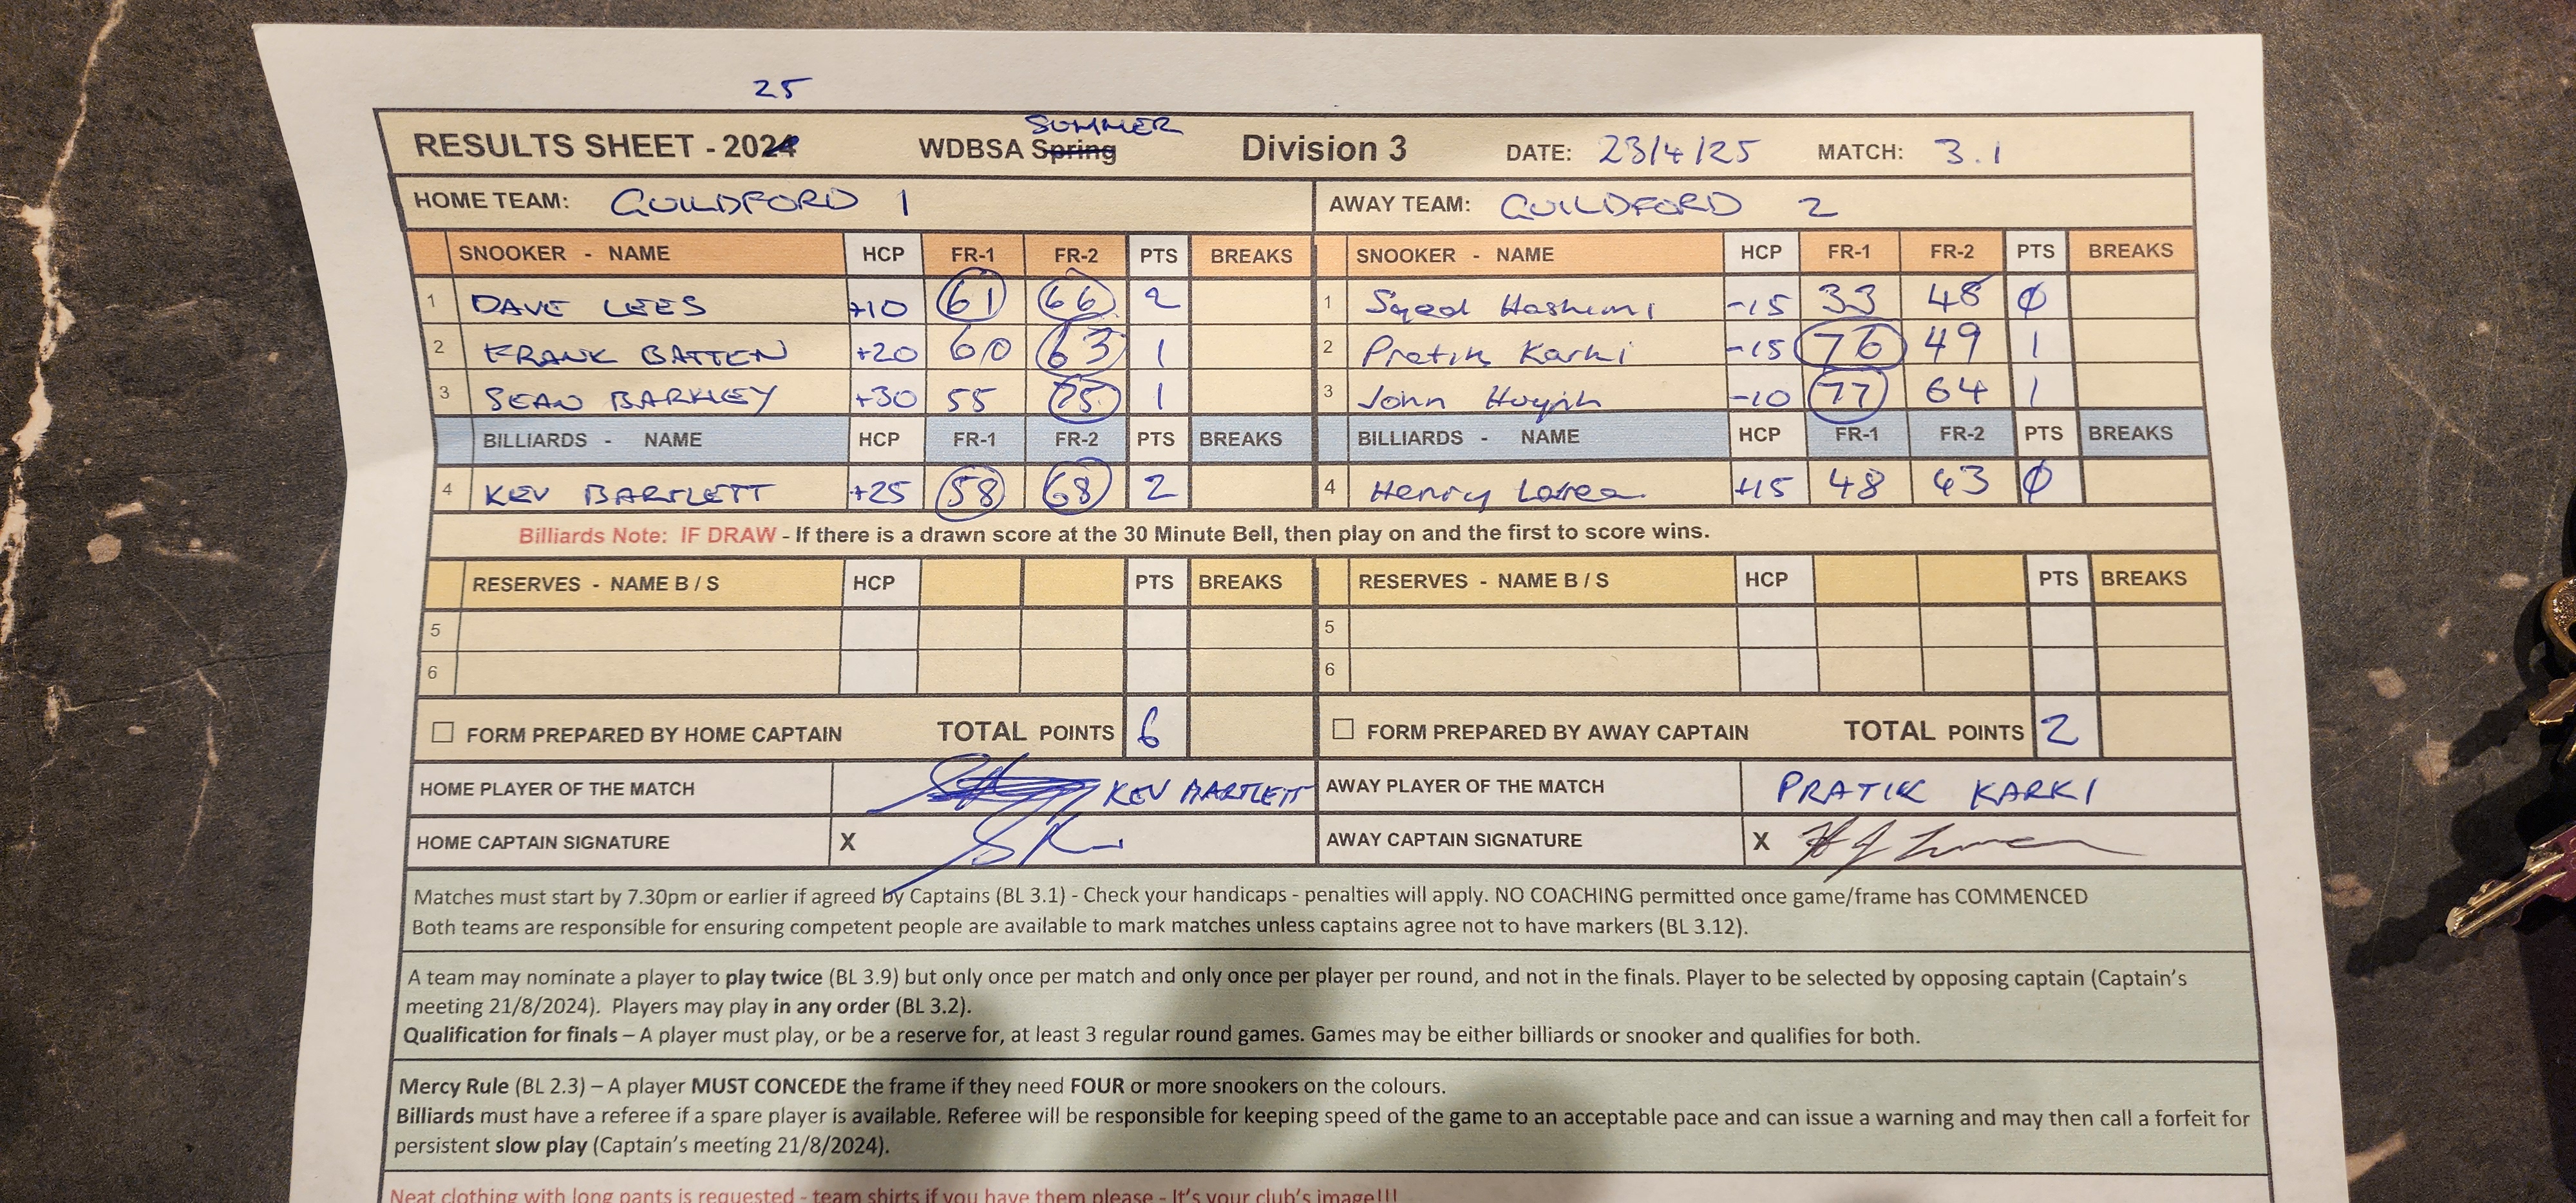 25
RESULTS SHEET - 2024 WDBSA Spring SUMMER Division 3 DATE: 23/4/25 MATCH: 3.1
HOME TEAM: GUILDFORD 1 AWAY TEAM: GUILDFORD 2
SNOOKER - NAME HCP FR-1 FR-2 PTS BREAKS SNOOKER - NAME HCP FR-1 FR-2 PTS BREAKS
1 DAVE LEES +10 61 66 2 1 Syed Hashemi -15 33 48 0
2 FRANK BATTEN +20 60 63 1 2 Pratik Karki -15 76 49 1
3 SEAN BARKLEY +30 55 75 1 3 John Huynh -10 77 64 1
BILLIARDS - NAME HCP FR-1 FR-2 PTS BREAKS BILLIARDS - NAME HCP FR-1 FR-2 PTS BREAKS
4 KEV BARTLETT +25 58 68 2 4 Henry +15 48 43 0
Billiards Note: IF DRAW - If there is a drawn score at the 30 Minute Bell, then play on and the first to score wins.
RESERVES - NAME B / S HCP PTS BREAKS RESERVES - NAME B / S HCP PTS BREAKS
5 5
6 6
FORM PREPARED BY HOME CAPTAIN TOTAL POINTS 6 FORM PREPARED BY AWAY CAPTAIN TOTAL POINTS 2
HOME PLAYER OF THE MATCH KEV BARTLETT AWAY PLAYER OF THE MATCH PRATIK KARKI
HOME CAPTAIN SIGNATURE X AWAY CAPTAIN SIGNATURE X
Matches must start by 7.30pm or earlier if agreed by Captains (BL 3.1) - Check your handicaps - penalties will apply. NO COACHING permitted once game/frame has COMMENCED
Both teams are responsible for ensuring competent people are available to mark matches unless captains agree not to have markers (BL 3.12).
A team may nominate a player to play twice (BL 3.9) but only once per match and only once per player per round, and not in the finals. Player to be selected by opposing captain (Captain's
meeting 21/8/2024). Players may play in any order (BL 3.2).
Qualification for finals – A player must play, or be a reserve for, at least 3 regular round games. Games may be either billiards or snooker and qualifies for both.
Mercy Rule (BL 2.3) – A player MUST CONCEDE the frame if they need FOUR or more snookers on the colours.
Billiards must have a referee if a spare player is available. Referee will be responsible for keeping speed of the game to an acceptable pace and can issue a warning and may then call a forfeit for
persistent slow play (Captain's meeting 21/8/2024).
Neat clothing with long pants is requested - team shirts if you have them please - It's your club's image!!!